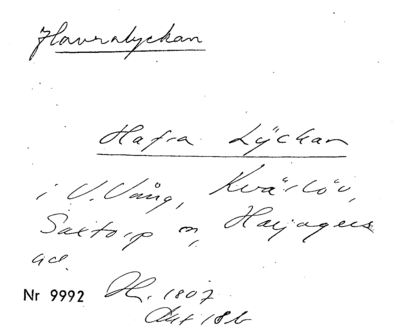 Havralyckan
Hafra Lÿckan
i V. Vång, Kvärlöv,
Saxtorp sn, Harjagers
hd.
Nr 9992 Lm. 1807
Akt 18b